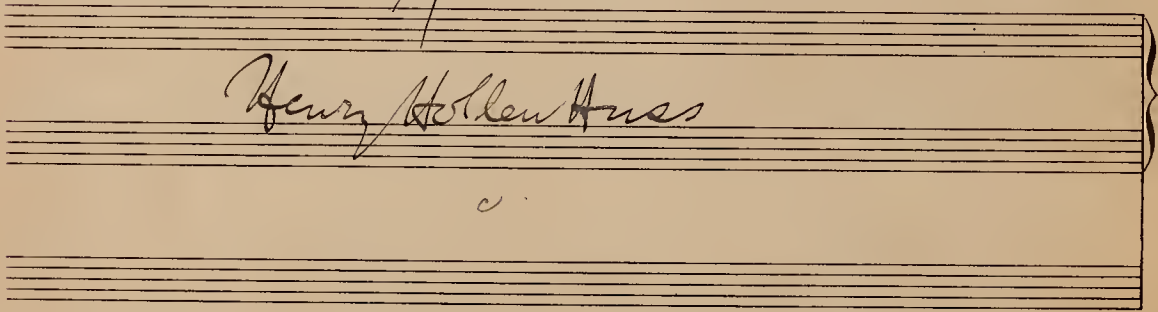 Henry Holden Huss